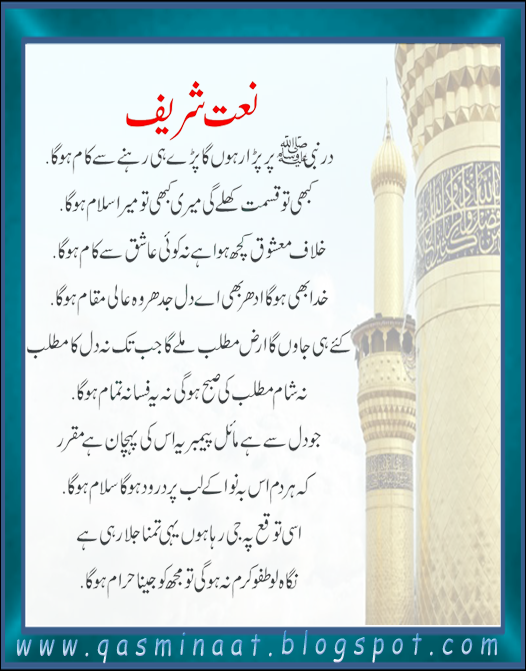 نعت شریف
در نبی ﷺ پر پڑا رہوں گا پڑے ہی رہنے سے کام ہوگا.
کبھی تو قسمت کھلے گی میری کبھی تو میرا سلام ہوگا.
خلاف معشوق کچھ ہوا ہے نہ کوئی عاشق سے کام ہوگا.
خدا بھی ہوگا ادھر بھی اے دل جدھر وہ عالی مقام ہوگا.
کئے ہی جاوں گا ارض مطلب ملے گا جب تک نہ دل کا مطلب
نہ شام مطلب کی صبح ہوگی نہ یہ فسانہ تمام ہوگا.
جو دل سے ہے مائل پیمبر یہ اس کی پہچان ہے مقرر
کہ ہر دم اس بہ نوا کے لب پر درود ہوگا سلام ہوگا.
اسی توقع پہ جی رہا ہوں یہی تمنا جلا رہی ہے
نگاہ لوطفو کرم نہ ہوگی تو مجھ کو جینا حرام ہوگا.
www.qasminaat.blogspot.com